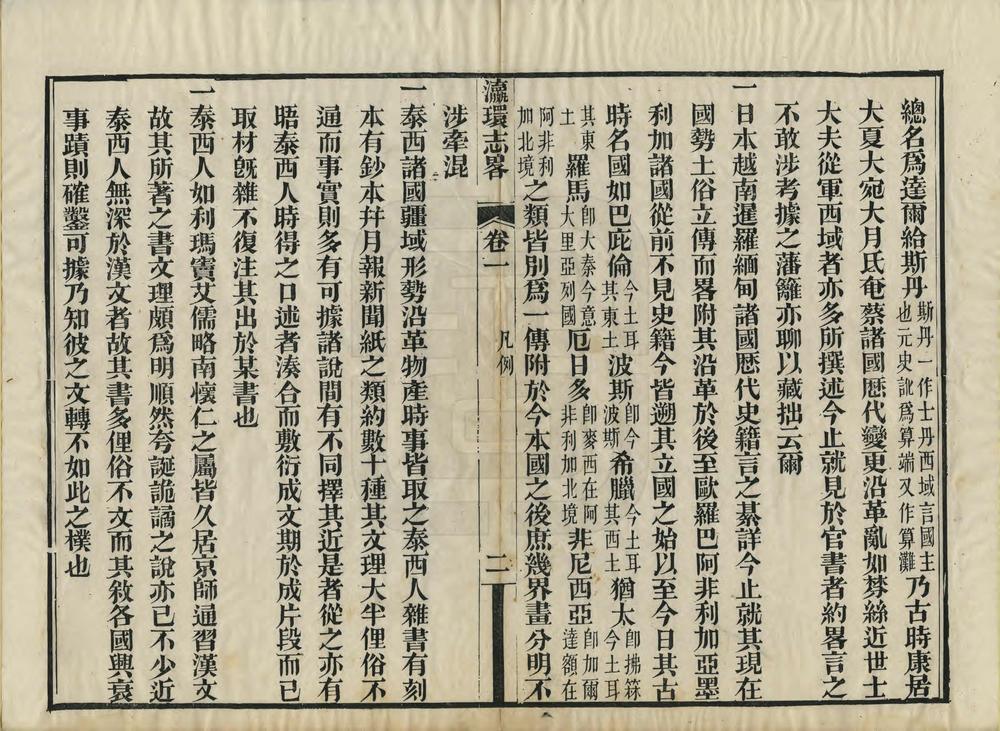 總名爲達爾給斯丹斯丹一作士丹西域言國主也元史訛爲算端又作算灘乃古時康居
大夏大宛大月氏奄蔡諸國歷代變更沿革亂如棼絲近世士
大夫從軍西域者亦多所撰述今止就見於官書者約畧言之
不敢涉者據之藩籬亦聊以藏拙云爾
一日本越南暹羅緬甸諸國歷代史籍言之綦詳今止就其現在
國勢土俗立傳而畧附其沿革於後至歐羅巴阿非利加亞墨
利加諸國從前不見史籍今皆遡其立國之始以至今日其古
時名國如巴庇倫今土耳其東土波斯卽今波斯希臘今土耳其西土猶太卽拂箖今土耳
其東土羅馬卽大秦今意大里亞列國厄日多卽麥西在阿非利加北境非尼西亞卽加爾達額在
阿非利加北境之類皆別爲一傳附於今本國之後庶幾界畫分明不
瀛環志畧
卷一
凡例
二
涉牽混
一泰西諸國疆域形勢沿革物產時事皆取之泰西人雜書有刻
本有鈔本幷月報新聞紙之類約數十種其文理大半俚俗不
通而事實則多有可據諸說間有不同擇其近是者從之亦有
晤泰西人時得之口述者湊合而敷衍成文期於成片段而已
取材旣雜不復注其出於某書也
一泰西人如利瑪竇艾儒略南懷仁之屬皆久居京師通習漢文
故其所著之書文理頗爲明順然夸誕詭譎之說亦已不少近
泰西人無深於漢文者故其書多俚俗不文而其敘各國興衰
事蹟則確鑿可據乃知彼之文轉不如此之樸也